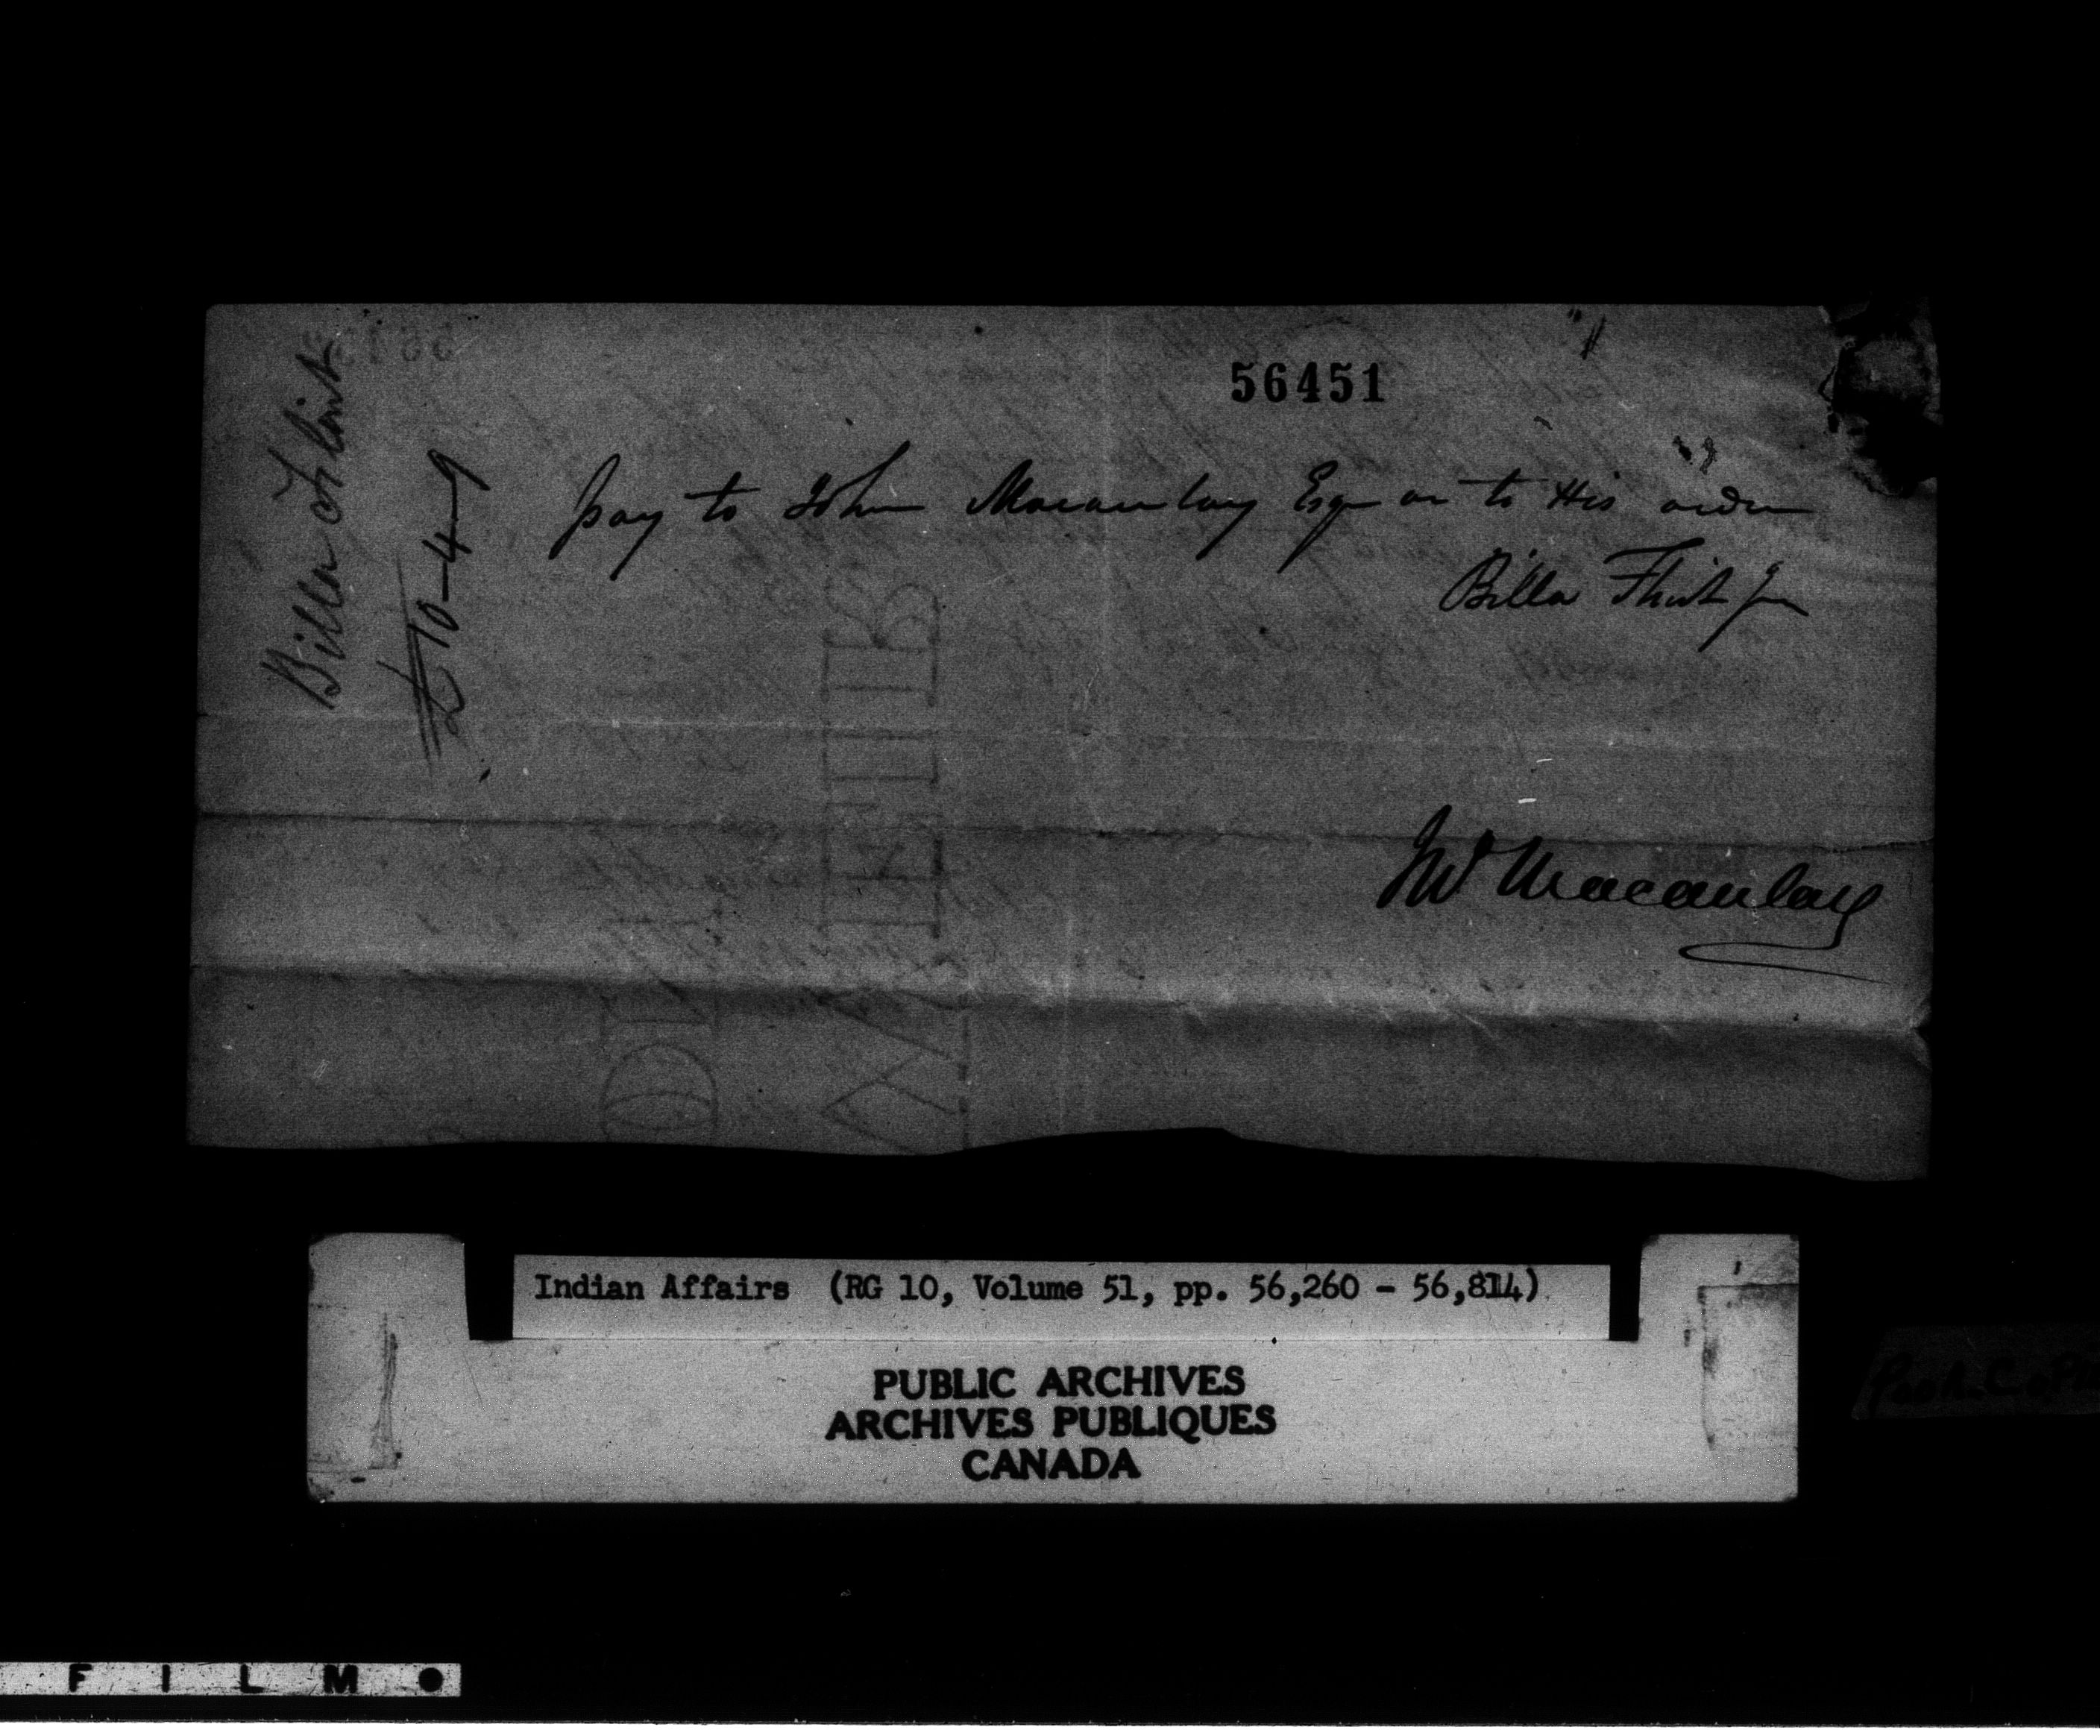 56451
Billa Flint
£10-4-9
pay to John Macaulay Esqr or to His order
Billa Flint Jun
Jno Macaulay
Indian Affairs (RG 10, Volume 51, pp. 56,260 - 56,814)
PUBLIC ARCHIVES
ARCHIVES PUBLIQUES
CANADA
FILM